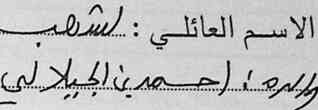 الاسم العائلي : لشهب
والده : احمد بن الجيلالي